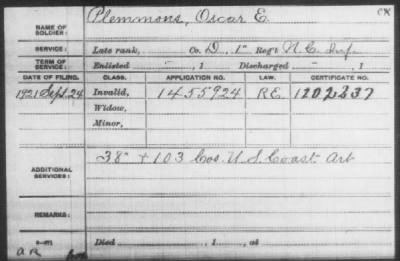 CK
NAME OF SOLDIER: Plemmons, Oscar E.
SERVICE: Late rank, Co. D, 1st Reg't N.C. Inf.
TERM OF SERVICE: Enlisted —, 1 Discharged —, 1
DATE OF FILING. CLASS. APPLICATION NO. LAW. CERTIFICATE NO.
1921 Sept. 24 Invalid, 1455924 R.E. 1202237
Widow,
Minor,
ADDITIONAL SERVICES: 38" + 103 Cos. U.S. Coast Art
REMARKS:
Died , 1 , at